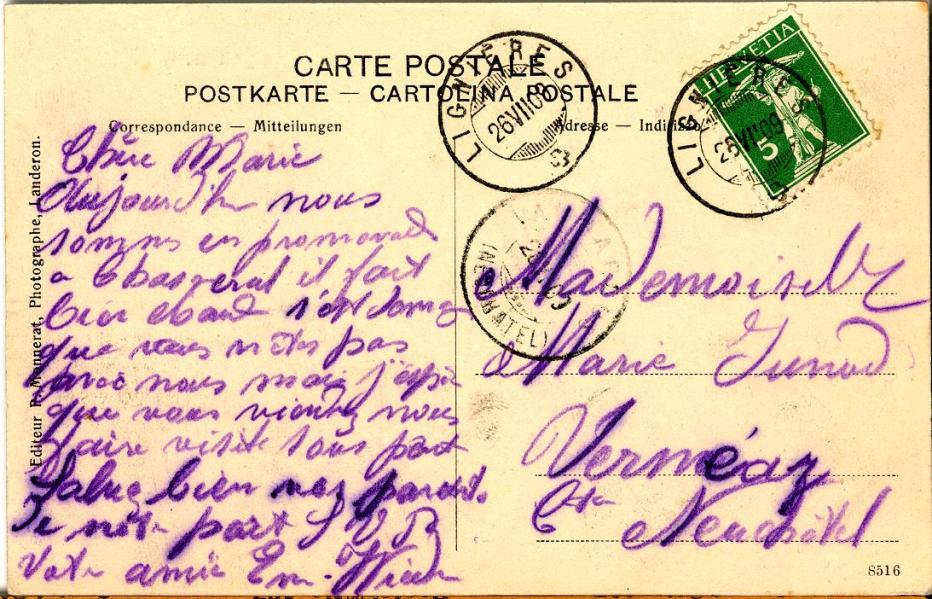 CARTE POSTALE
POSTKARTE — CARTOLINA POSTALE
Correspondance — Mitteilungen
Adresse — Indirizzo
LIGNIÈRES
26 VII 09
LIGNIÈRES
26 VII 09
HELVETIA
5
(NEUCHATEL)
Editeur R. Monnerat, Photographe, Landeron.
Chère Marie
Aujourd'hui nous
sommes en promenade
a Chasseral il fait
bien chaud
que vous n'êtes pas
avec nous mais j'espère
que vous viendrez nous
faire visite
Saluez bien vos parents
de notre part S V P
Votre amie Em.
Mademoiselle
Marie Junod
Ctn Neuchâtel
8516